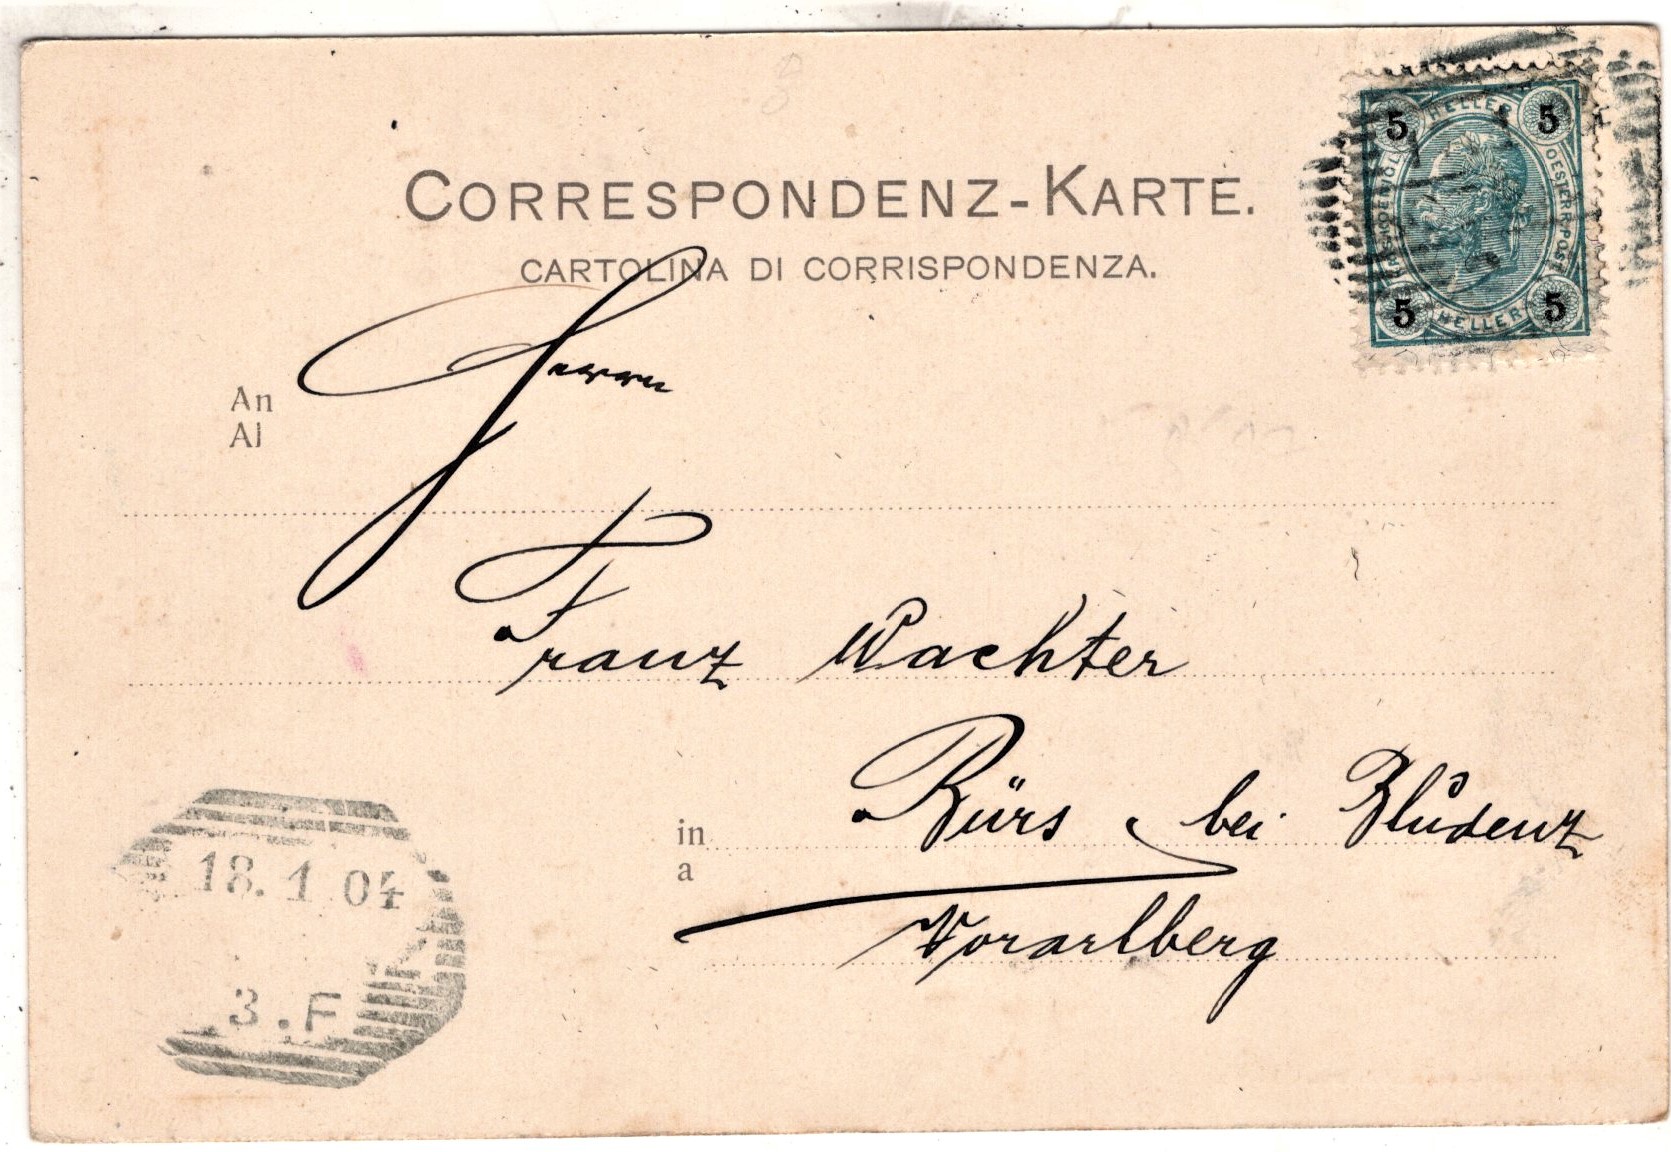 CORRESPONDENZ-KARTE.
CARTOLINA DI CORRISPONDENZA.
5 HELLER 5
KAIS. KOENIGL. OESTERR. POST
5 HELLER 5
An Herrn
Al
Franz Wachter
in Bürs bei Bludenz
a
Vorarlberg
18.1.04
3.F